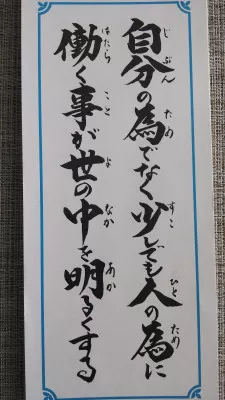 自分の為でなく少しでも人の為に
働く事が世の中を明るくする